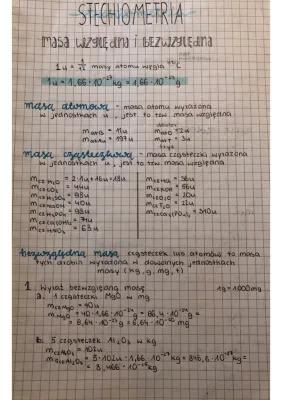 STECHIOMETRIA
masa względna i bezwzględna
1u = 1/12 masy atomu węgla ¹²C
1u = 1,66·10⁻²⁷ kg = 1,66·10⁻²⁴ g
masa atomowa - masa atomu wyrażona
w jednostkach u, jest to tzw masa względna
m at B = 11u
m at Au = 197u
2u
m at T = 3u
masa cząsteczkowa - masa cząsteczki wyrażona
w jednostkach u, jest to tzw masa względna
m cz H₂O = 2·1u + 16u = 18u
m cz CO₂ = 44u
m cz H₂SO₄ = 98u
m cz NaOH = 40u
= 98u
m cz Ca(OH)₂ = 74u
m cz HNO₃ = 63u
= 36u
m cz KOH = 56u
= 20u
m cz T₂O = 22u
m cz Ca₃(PO₄)₂ = 310u
bezwzględna masa cząsteczek lub atomów to masa
tych drobin wyrażona w dowolnych jednostkach
masy (kg, g, mg, t)
1. Wyraź bezwzględną masę 1g = 1000mg
a. 1 cząsteczki MgO w mg
m cz MgO = 40u
m MgO = 40·1,66·10⁻²⁴ g = 66,4·10⁻²⁴ g =
= 6,64·10⁻²³ g = 6,64·10⁻²⁰ mg
b. 5 cząsteczek Al₂O₃ w kg
m cz Al₂O₃ = 102u
m 5cz Al₂O₃ = 5·102u·1,66·10⁻²⁷ kg = 846,6·10⁻²⁷ kg =
= 8,466·10⁻²⁵ kg